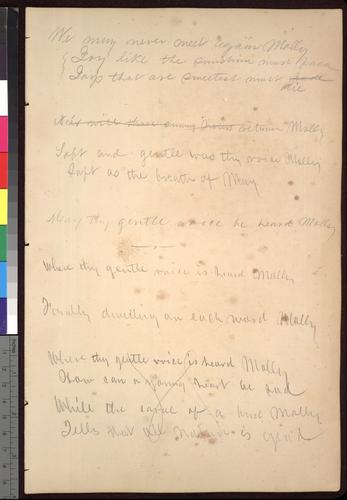 We may never meet again Molly
Joy like the sunshine must pass
Joys that are sweetest must
die
will these sunny between Molly
Soft and gentle was thy voice Molly
Soft as the breath of May
May thy gentle voice be heard Molly
Where thy gentle voice is heard Molly
Fondly dwelling on each word Molly
Where thy gentle voice is heard Molly
How can a young heart be sad
While the of a Molly
Tells that all nature is